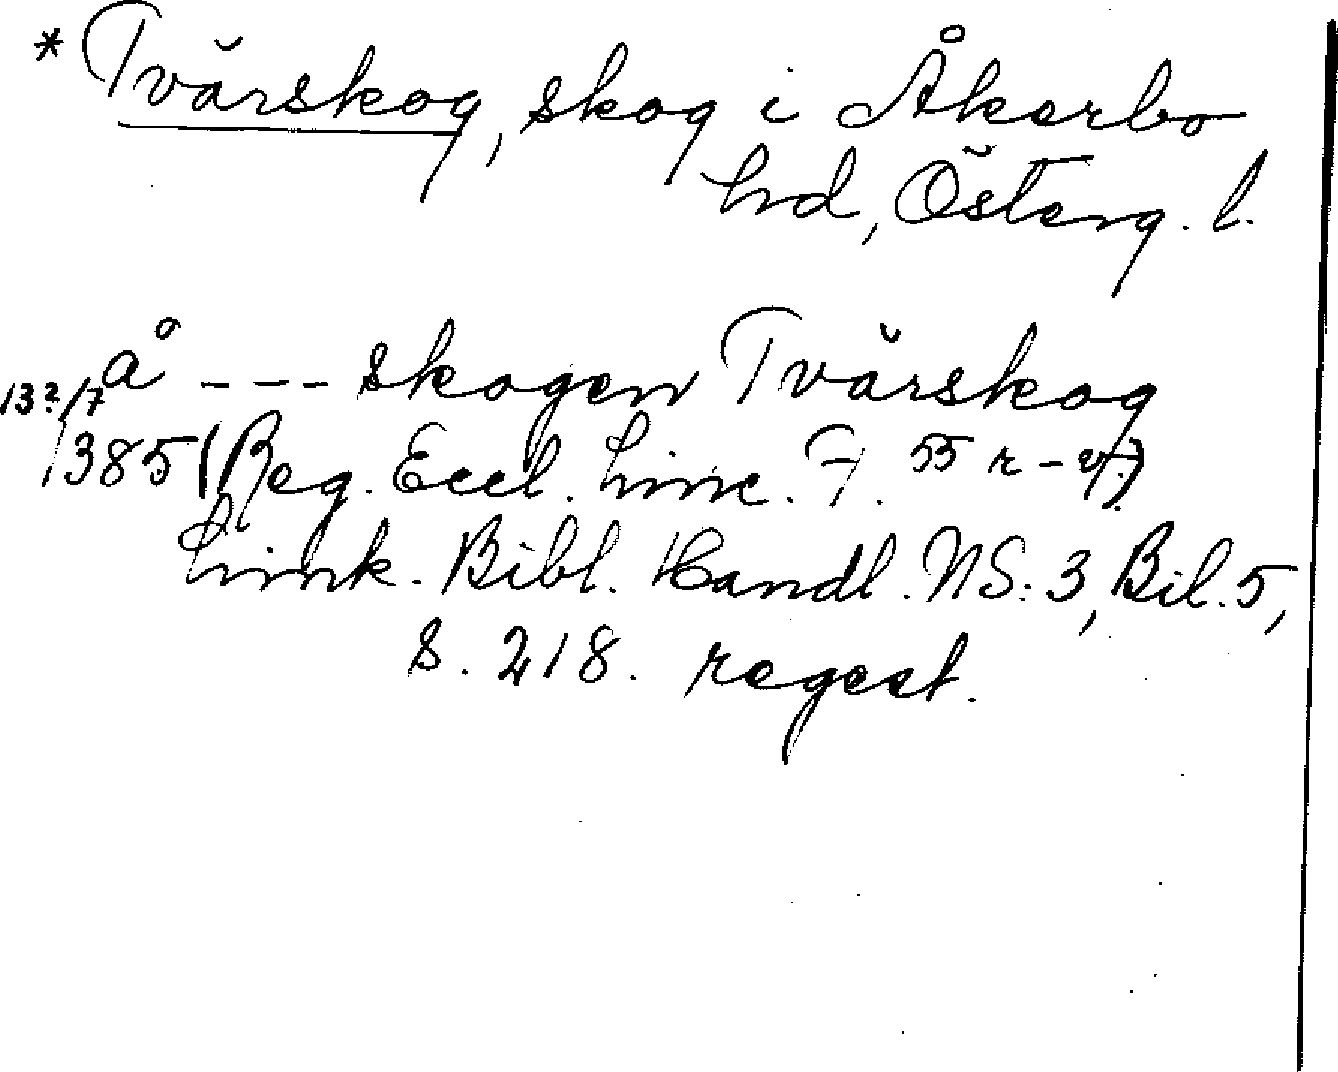 * Tvärskog, skog i Åkerbo
hd, Österg. l.
å --- skogen Tvärskog
13?/7 1385 (Reg. Eccl. Linc. F. 55 r-v).
Link. Bibl. Handl. NS: 3, Bil. 5,
s. 218. regest.